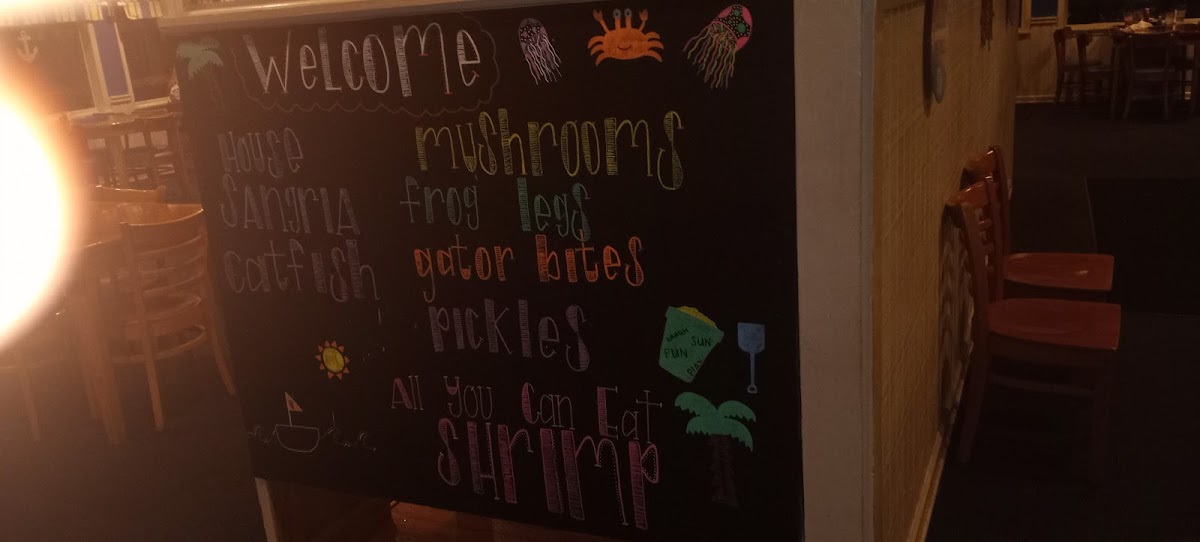 Welcome
House
Sangria
Catfish
mushrooms
frog legs
gator bites
Pickles
All You Can Eat
SHRIMP
SUN
FUN
PLAY